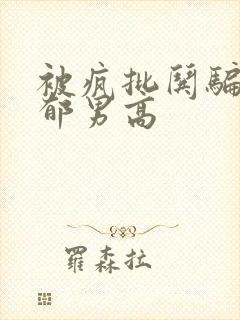 被疯批闋騙
郁男高
羅森拉